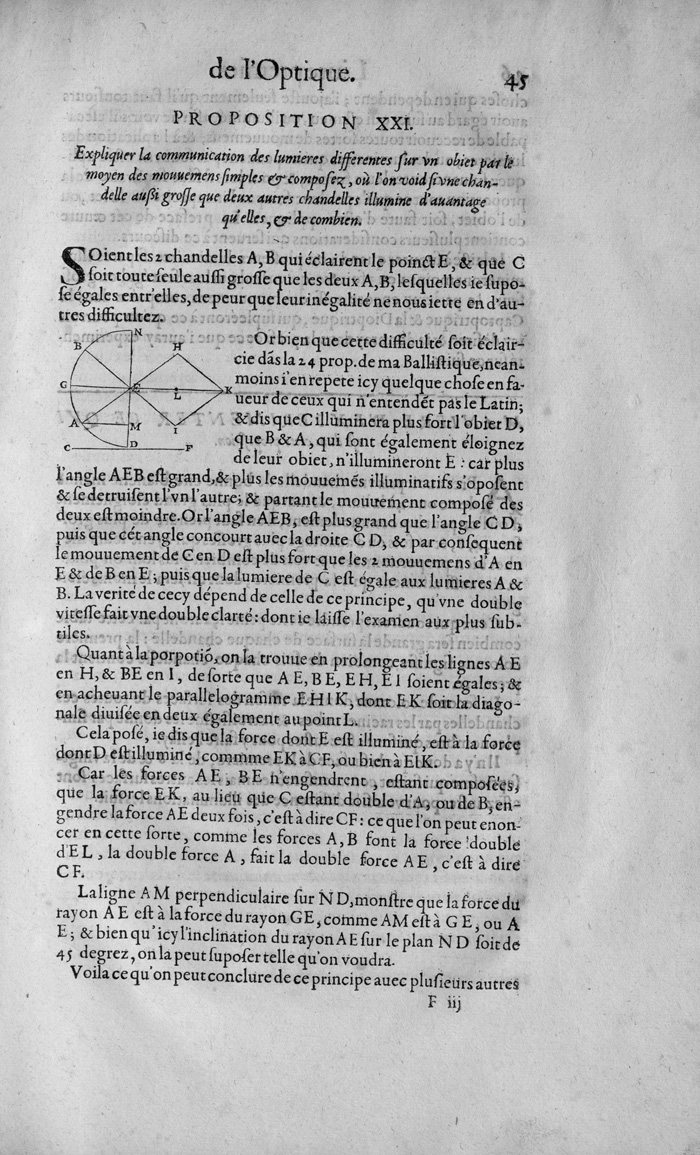 de l'Optique. 45
PROPOSITION XXI.
Expliquer la communication des lumieres differentes sur vn obiet par le
moyen des mouuemens simples & composez, où l'on void si vne chan-
delle aussi grosse que deux autres chandelles illumine d'auantage
qu'elles, & de combien.
SOient les 2 chandelles A, B qui éclairent le poinct E, & que C
soit toute seule aussi grosse que les deux A, B, lesquelles ie supo-
se égales entr'elles, de peur que leur inégalité ne nous iette en d'au-
tres difficultez.
N
B
H
G
E
L
K
A
M
I
D
C
F
Or bien que cette difficulté soit éclair-
cie dãs la 24 prop. de ma Ballistique, nean-
moins i'en repete icy quelque chose en fa-
ueur de ceux qui n'entendẽt pas le Latin;
& dis que C illuminera plus fort l'obiet D,
que B & A, qui sont également éloignez
de leur obiet, n'illumineront E : car plus
l'angle AEB est grand, & plus les mouuemẽs illuminatifs s'oposent
& se detruisent l'vn l'autre; & partant le mouuement composé des
deux est moindre. Or l'angle AEB, est plus grand que l'angle C D,
puis que cét angle concourt auec la droite C D, & par consequent
le mouuement de C en D est plus fort que les 2 mouuemens d'A en
E & de B en E; puis que la lumiere de C est égale aux lumieres A &
B. La verité de cecy dépend de celle de ce principe, qu'vne double
vitesse fait vne double clarté: dont ie laisse l'examen aux plus sub-
tiles.
Quant à la porpotiõ, on la trouue en prolongeant les lignes A E
en H, & BE en I, de sorte que A E, B E, E H, E I soient égales; &
en acheuant le parallelogramme E H I K, dont E K soit la diago-
nale diuisée en deux également au point L.
Cela posé, ie dis que la force dont E est illuminé, est à la force
dont D est illuminé, commme EK à CF, ou bien à EIK.
Car les forces A E, B E n'engendrent, estant composées,
que la force E K, au lieu que C estant double d'A, ou de B, en-
gendre la force AE deux fois, c'est à dire CF: ce que l'on peut enon-
cer en cette sorte, comme les forces A, B font la force double
d'E L, la double force A, fait la double force A E, c'est à dire
C F.
La ligne A M perpendiculaire sur N D, monstre que la force du
rayon A E est à la force du rayon GE, comme AM est à G E, ou A
E; & bien qu'icy l'inclination du rayon AE sur le plan N D soit de
45 degrez, on la peut suposer telle qu'on voudra.
Voila ce qu'on peut conclure de ce principe auec plusieurs autres
F iij